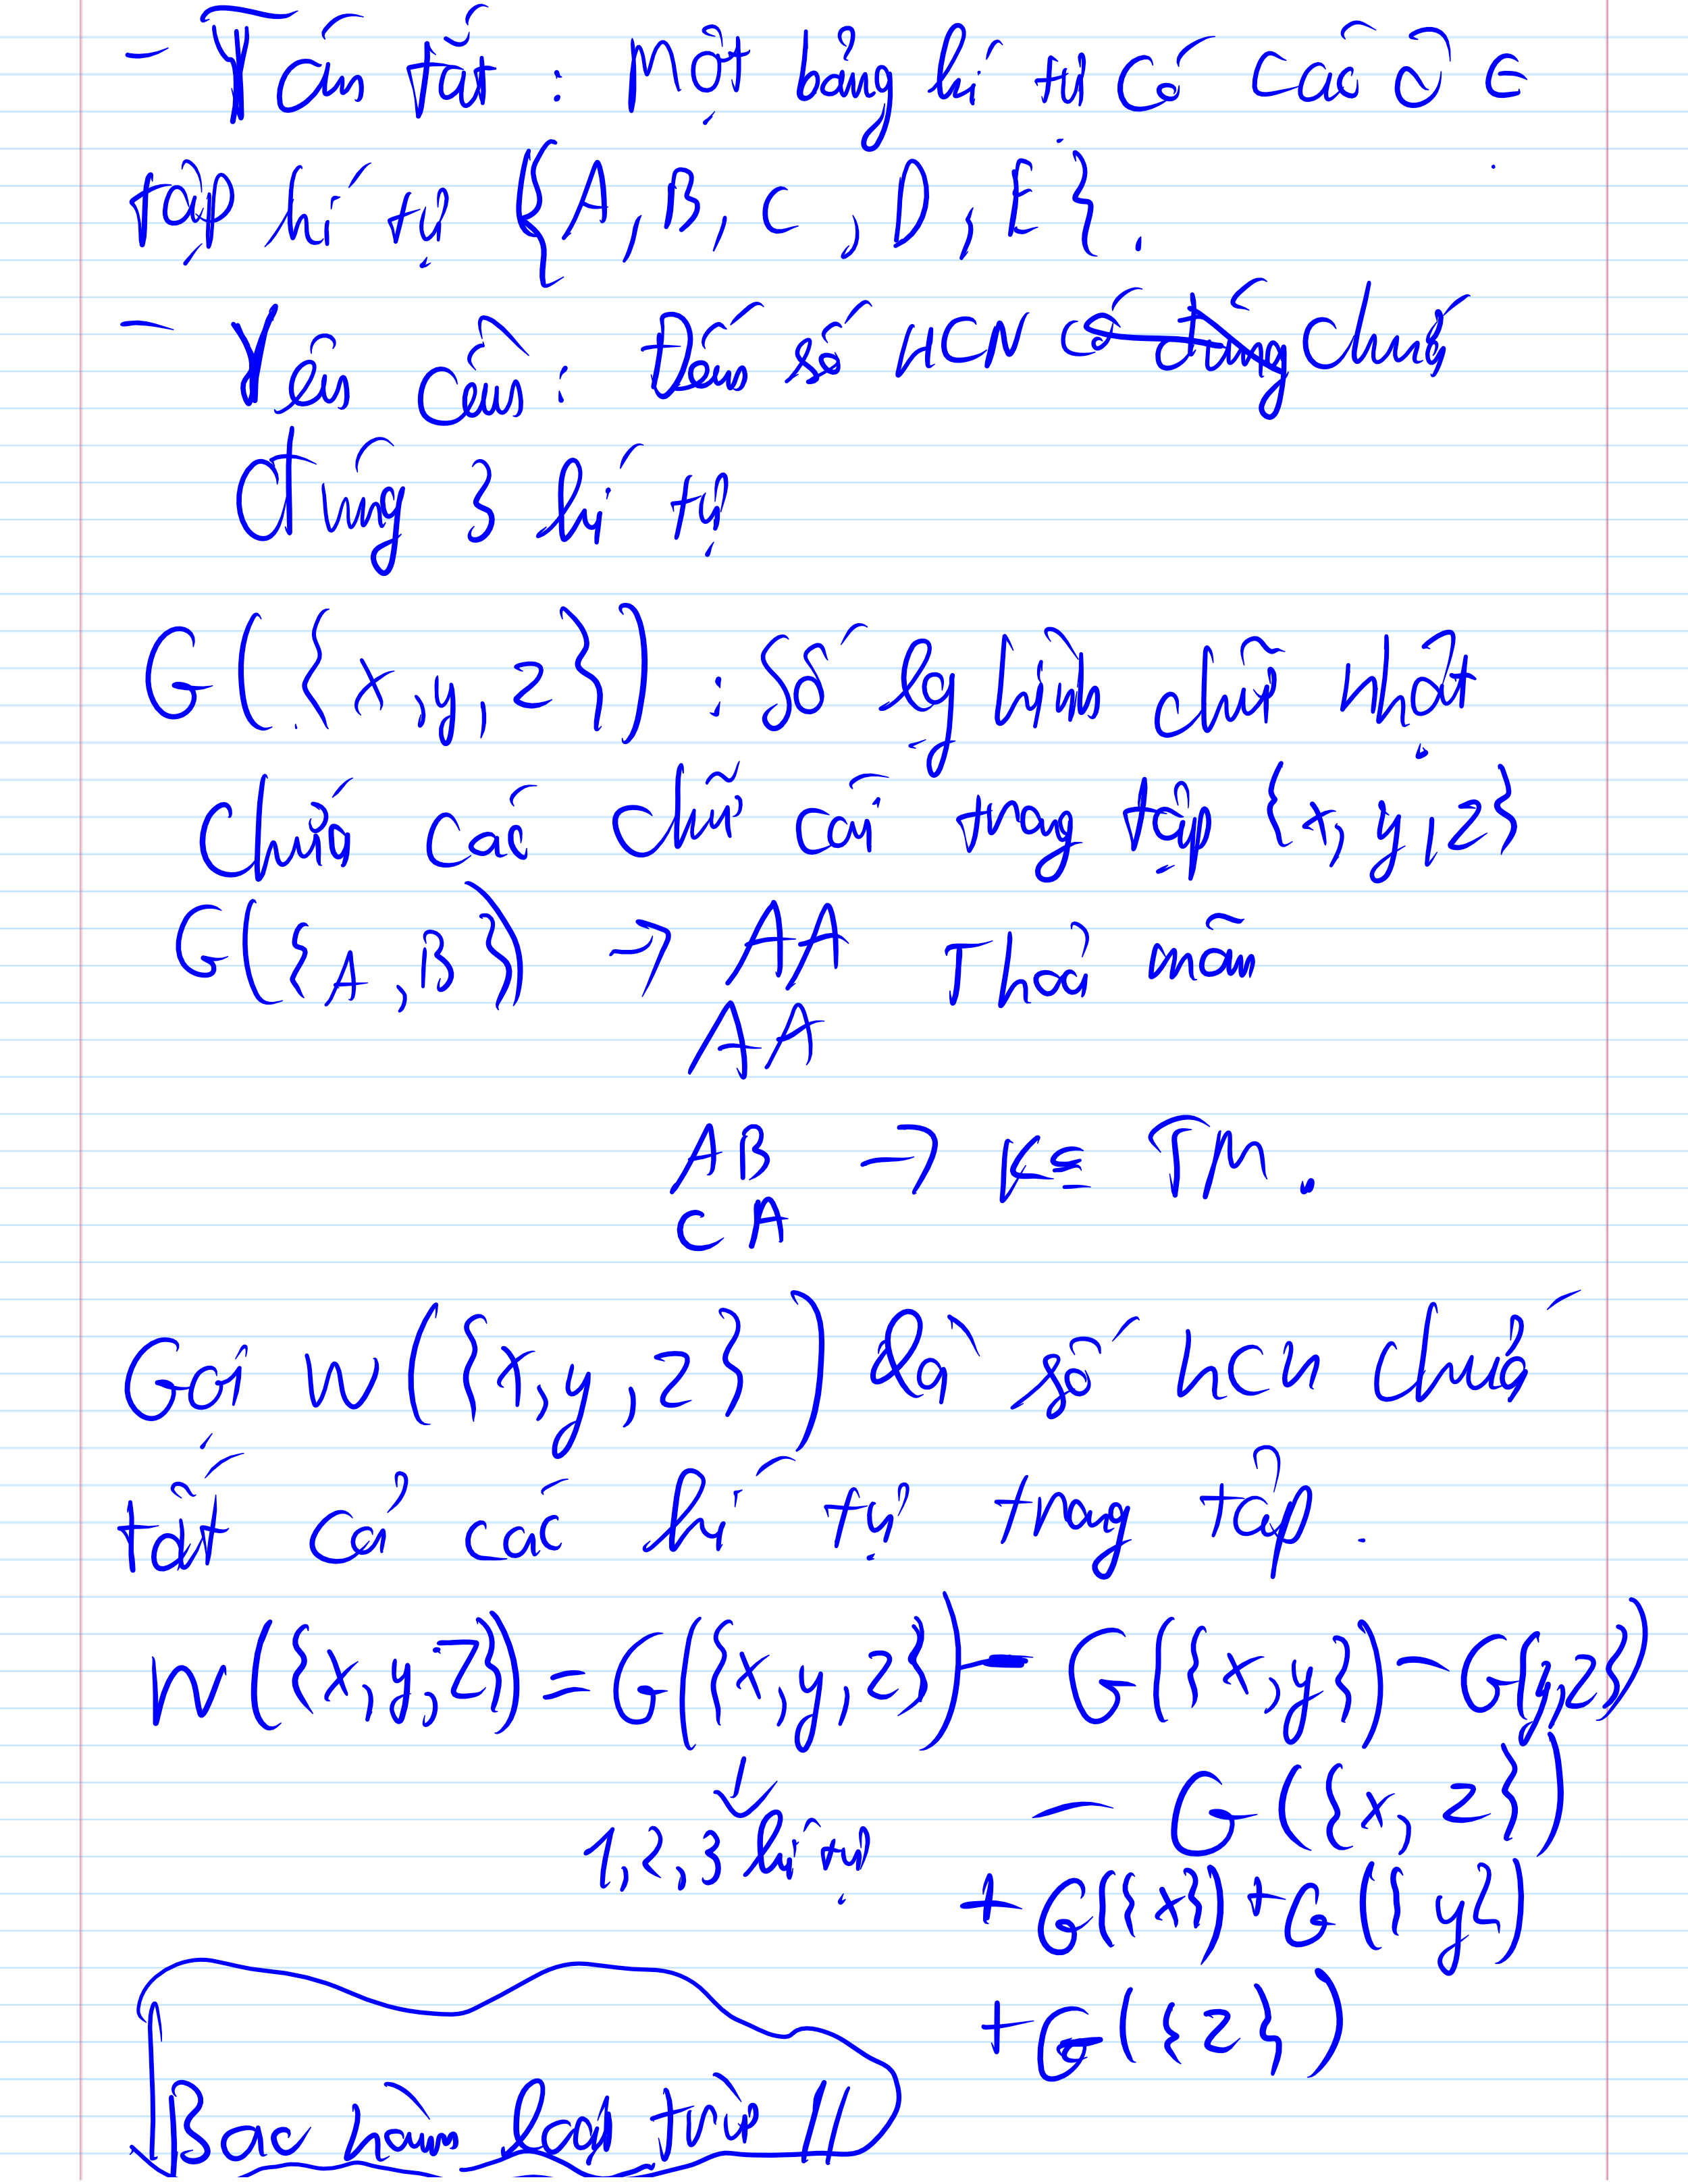 - Tóm tắt : Một bảng kí tự có các ô ∈
tập kí tự {A, B, C, D, E}.
- Yêu cầu: Đếm số HCN có đúng chứa
đúng 3 kí tự
G({x, y, z}) : Số lg hình chữ nhật
chứa các chữ cái trong tập {x, y, z}
G({A, B}) → AA Thoả mãn
AA
AB → K TM.
CA
Gọi W({x, y, z}) là số hcn chứa
tất cả các kí tự trong tập.
W({x, y, z}) = G({x, y, z}) - G({x, y}) - G({y, z})
- G({x, z})
1, 2, 3 kí tự
+ G({x}) + G({y})
+ G({z})
Bao hàm loại trừ !!